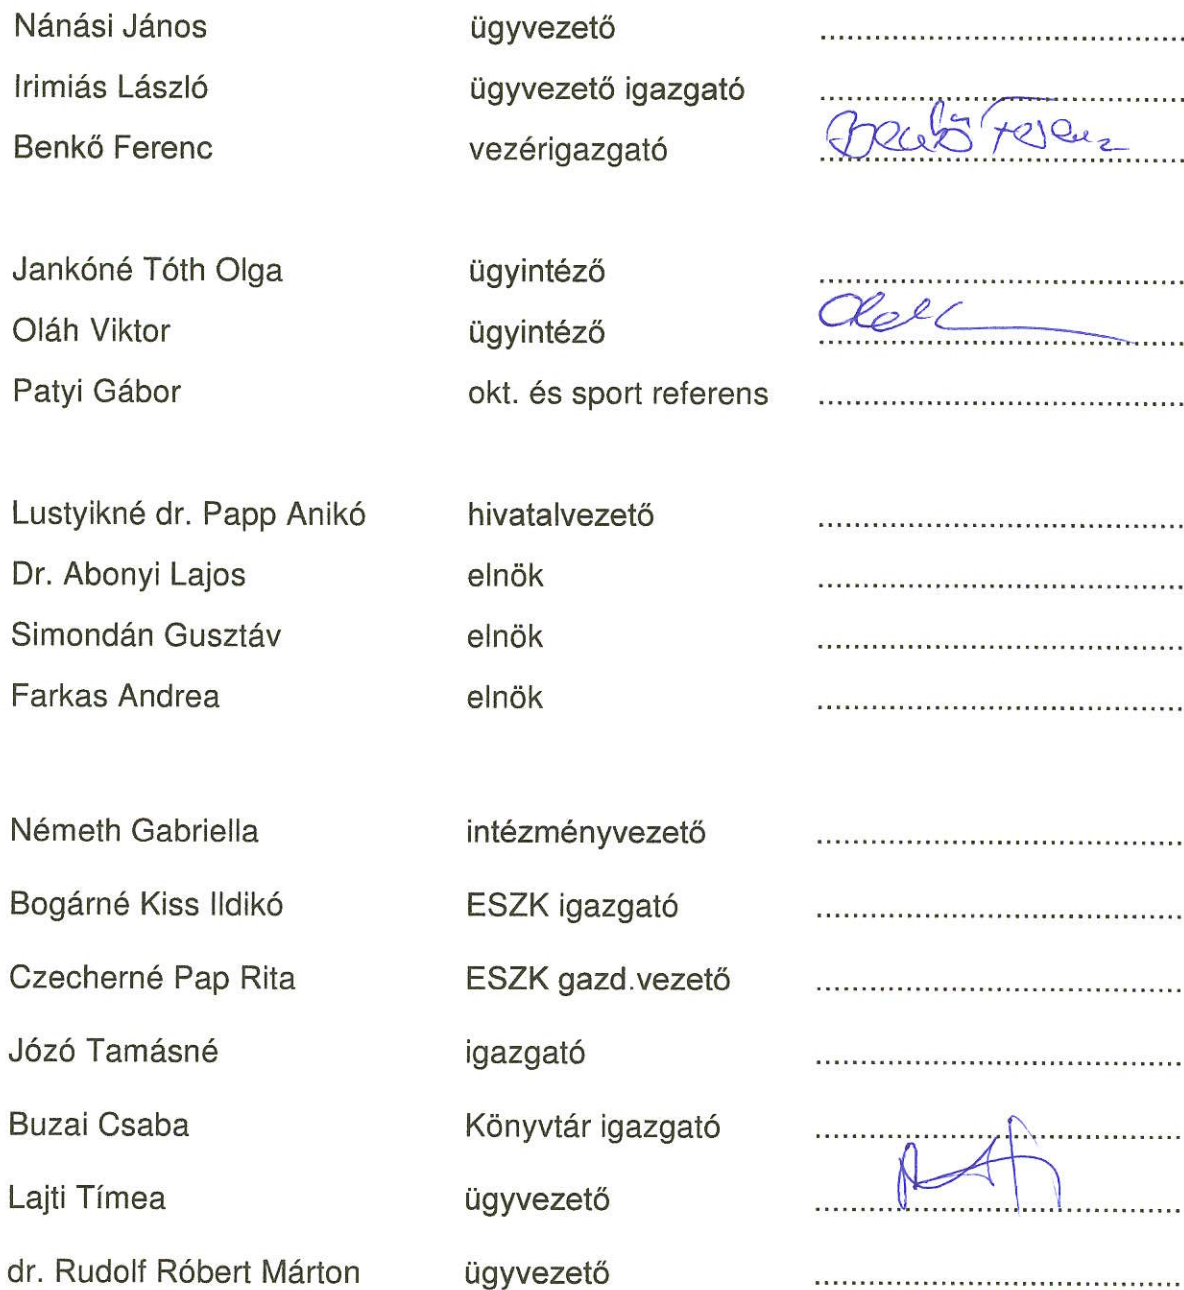 Nánási János ügyvezető ........................................
Irimiás László ügyvezető igazgató ........................................
Benkő Ferenc vezérigazgató Benkő Ferenc
Jankóné Tóth Olga ügyintéző ........................................
Oláh Viktor ügyintéző ........................................
Patyi Gábor okt. és sport referens ........................................
Lustyikné dr. Papp Anikó hivatalvezető ........................................
Dr. Abonyi Lajos elnök ........................................
Simondán Gusztáv elnök ........................................
Farkas Andrea elnök ........................................
Németh Gabriella intézményvezető ........................................
Bogárné Kiss Ildikó ESZK igazgató ........................................
Czecherné Pap Rita ESZK gazd.vezető ........................................
Józó Tamásné igazgató ........................................
Buzai Csaba Könyvtár igazgató ........................................
Lajti Tímea ügyvezető ........................................
dr. Rudolf Róbert Márton ügyvezető ........................................